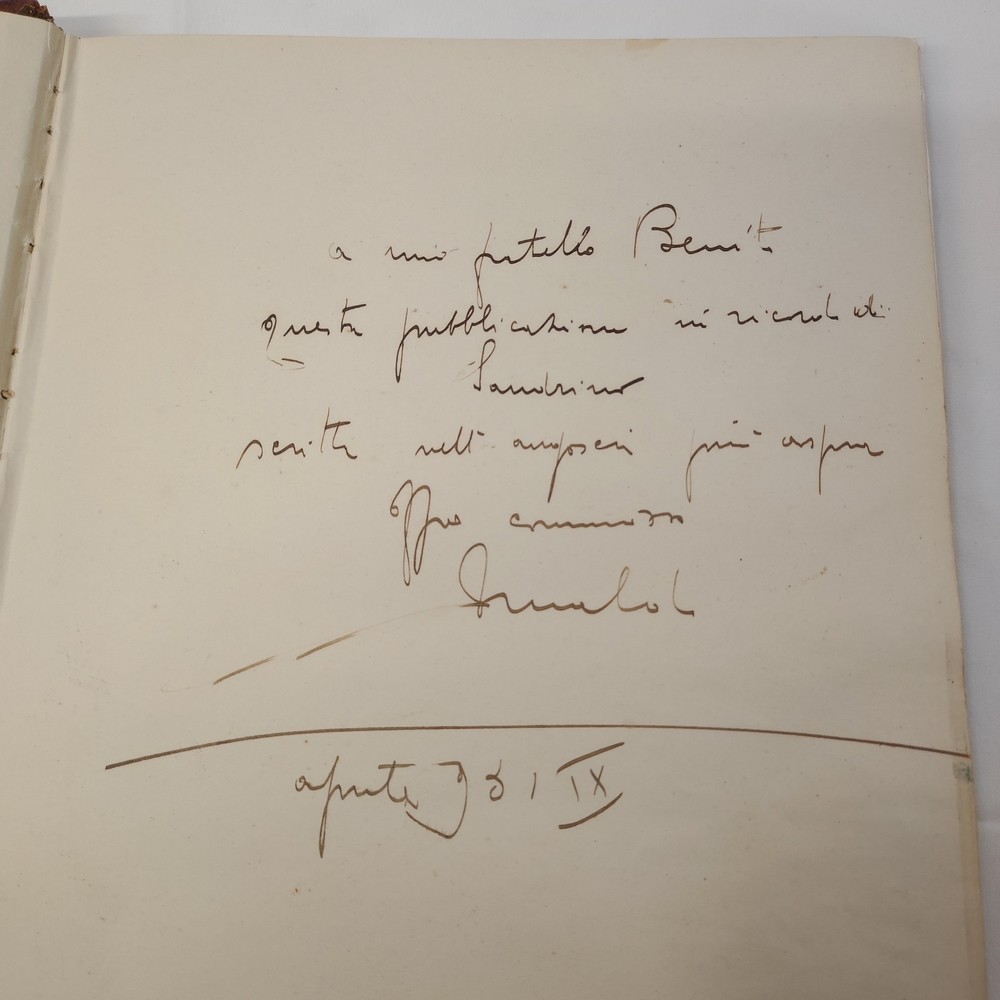 a mio fratello Benito
questa pubblicazione in ricordo di
Sandrino
scritta nell'angoscia più aspra
Offro commosso
Arnaldo
agosto 931 IX